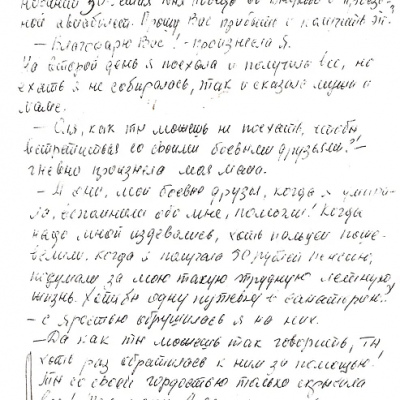 ной авиабилет. Прошу Вас прибыть и получить эт-
— Благодарю Вас! — произнесла я.
На второй день я поехала и получила все, но
ехать я не собиралась, так и сказала мужу и
маме.
— Оля, как ты можешь не поехать, чтобы
встретиться со своими боевыми друзьями?! —
гневно произнесла моя мама.
— А они, мои боевые друзья, когда я умира-
ла, вспомнили обо мне, помогли? Когда
надо мной издевались, хоть пальцем поше-
велили, когда я получала 30 рублей пенсию,
подумали за мою такую трудную нелегкую
жизнь. Хотя бы одну путевку в санаторий?
— с яростью обрушилась я на них.
— Да как ты можешь так говорить, ты
хоть раз обратилась к ним за помощью?
Ты со своей гордостью только